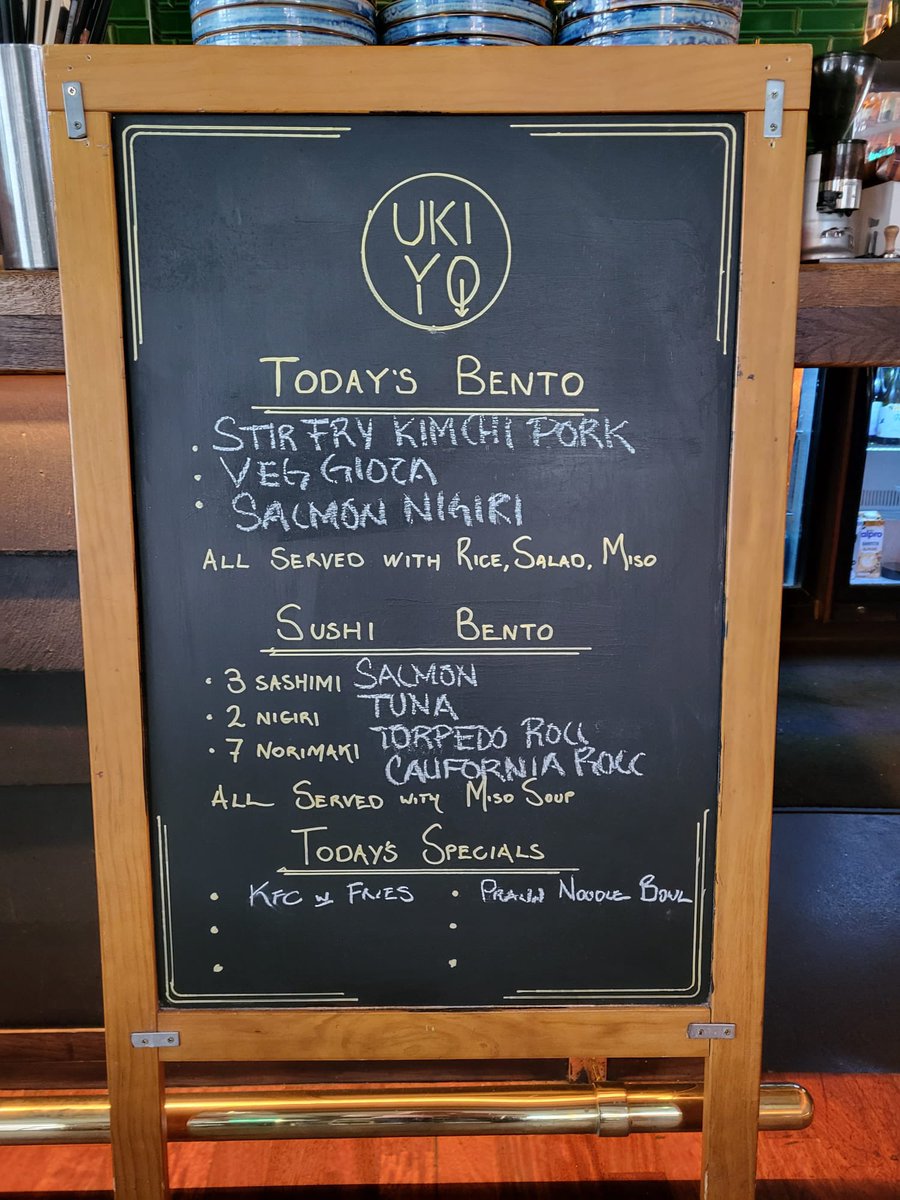 UKI
YO
TODAY'S BENTO
• STIR FRY KIMCHI PORK
• VEG GIOZA
• SALMON NIGIRI
ALL SERVED WITH RICE, SALAD, MISO
SUSHI BENTO
• 3 SASHIMI SALMON
• 2 NIGIRI TUNA
• 7 NORIMAKI TORPEDO ROLL
CALIFORNIA ROLL
ALL SERVED WITH MISO SOUP
TODAY'S SPECIALS
• KFC W FRIES • PRAWN NOODLE BOWL
• •
• •
alpro